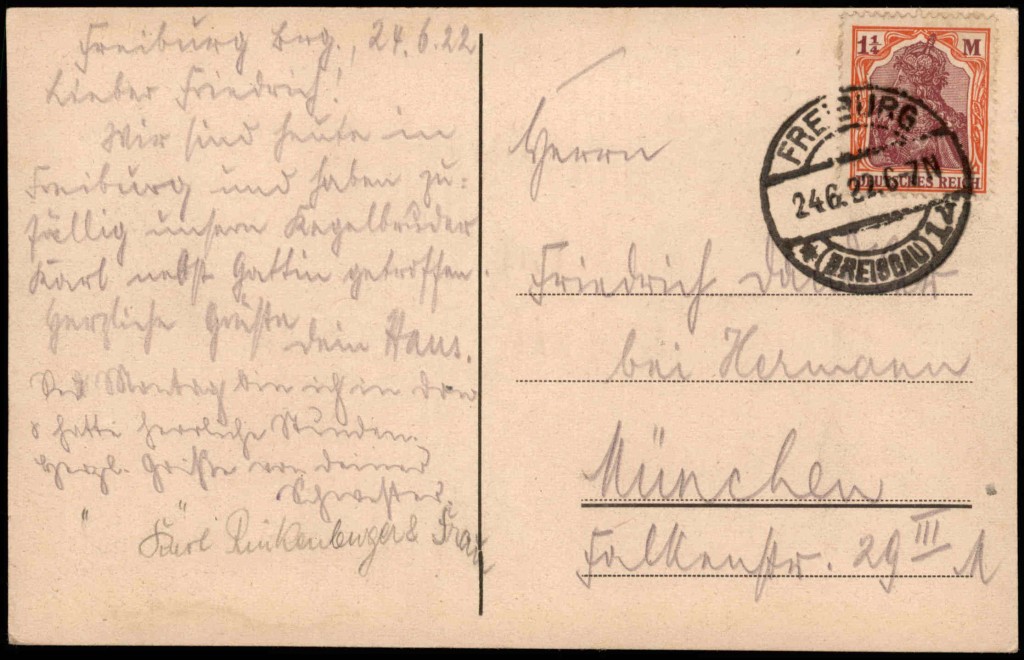 Freiburg Brg., 24.6.22
Lieber Friedrich!
Wir sind heute in
Freiburg und haben zu=
fällig unsern Kegelbruder
Karl nebst Gattin getroffen.
Herzliche Grüße
dein Hans.
Seit Montag bin ich in
& hatte herrliche Stunden.
Herzl. Grüße von deiner
Schwester.
Karl & Frau
1¼ M
DEUTSCHES REICH
FREIBURG
24.6.22.6-7N
* (BREISGAU) 1
Herrn
Friedrich
bei Hermann
München
Falkenstr. 29 III 1